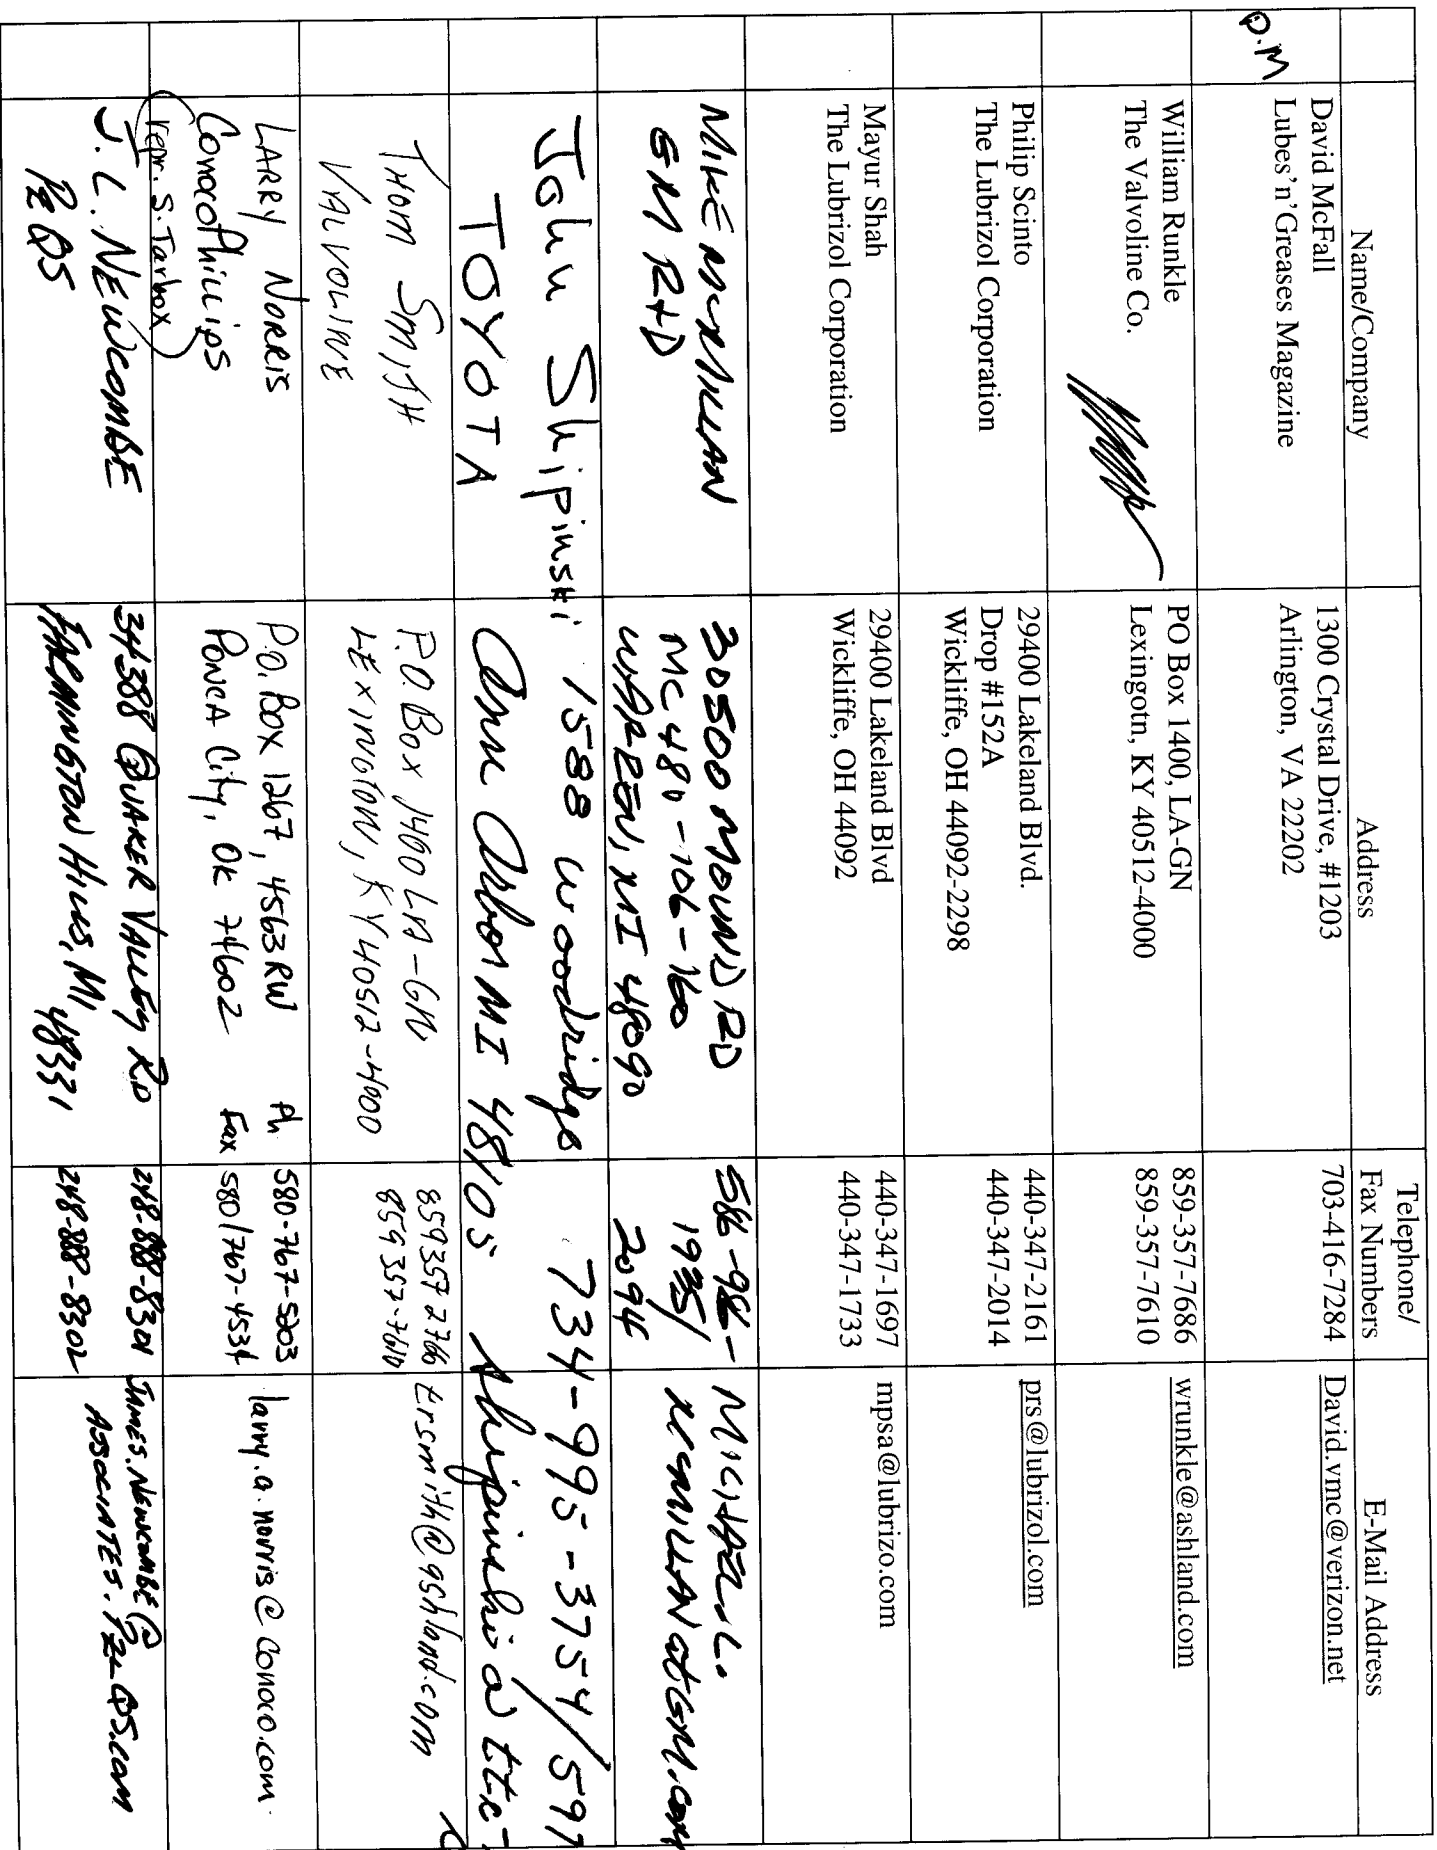 Name/Company
Address
Telephone/
Fax Numbers
E-Mail Address
D.M
David McFall
Lubes'n'Greases Magazine
1300 Crystal Drive, #1203
Arlington, VA 22202
703-416-7284
David.vmc@verizon.net
William Runkle
The Valvoline Co.
PO Box 1400, LA-GN
Lexingotn, KY 40512-4000
859-357-7686
859-357-7610
wrunkle@ashland.com
Philip Scinto
The Lubrizol Corporation
29400 Lakeland Blvd.
Drop #152A
Wickliffe, OH 44092-2298
440-347-2161
440-347-2014
prs@lubrizol.com
Mayur Shah
The Lubrizol Corporation
29400 Lakeland Blvd
Wickliffe, OH 44092
440-347-1697
440-347-1733
mpsa@lubrizo.com
MIKE McMILLAN
GM R+D
30500 MOUND RD
MC 480-106-160
WARREN, MI 48090
586-986-
1935/
2094
MICHAEL.
McMILLAN at GM.com
John Shipinski
TOYOTA
1588 Woodridge
Ann Arbor MI 48105
734-995-3754/597
THOM SMITH
VALVOLINE
P.O. Box 1400 LA-GN
LEXINGTON, KY 40512-4000
859 357 2766
859 357-7610
trsmith@ashland.com
LARRY NORRIS
ConocoPhillips
(repr. S. Tarbox)
P.O. Box 1267, 4563 RW
PONCA City, OK 74602
Ph 580-767-5203
Fax 580/767-4534
larry.a.norris@conoco.com
J.C. NEWCOMBE
PZ QS
34388 QUAKER VALLEY RD
FARMINGTON HILLS, MI 48331
248-888-8301
248-888-8302
JAMES.NEWCOMBE@
ASSOCIATES.PZL-QS.com